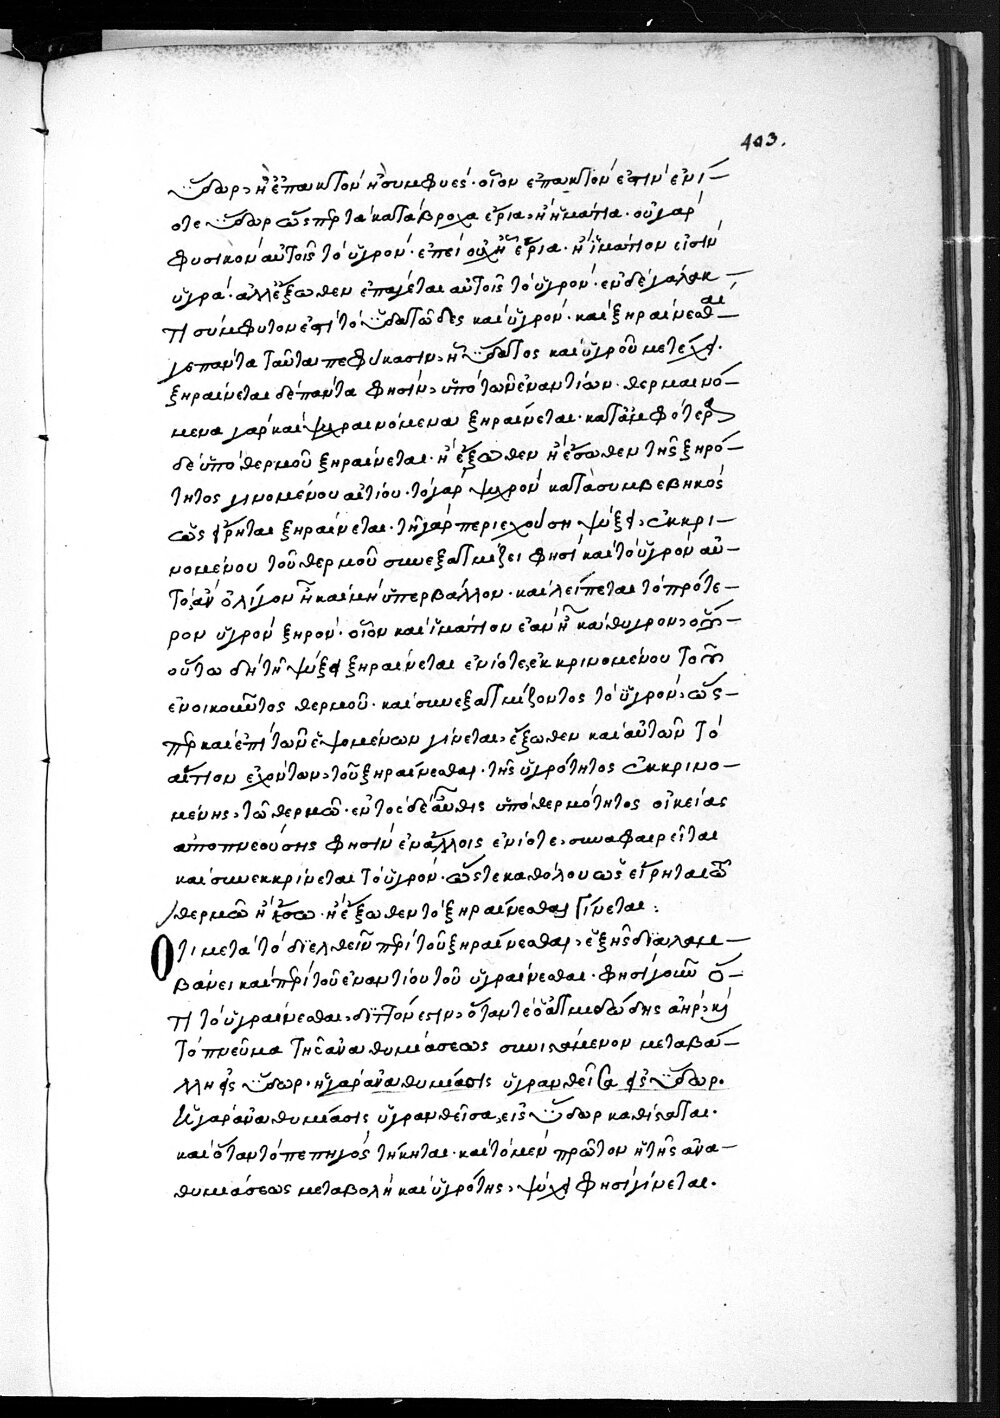 403.
ὕδωρ, ἢ ἐπακτὸν ἢ συμφυές. οἷον ἐπακτὸν ἐστὶν ἐνί-
οτε ὕδωρ ὥσπερ τὰ κατάβροχα ἔρια, ἢ ἱμάτια. οὐ γὰρ
φυσικὸν αὐτοῖς τὸ ὑγρόν. ἐπεὶ οὐχ ᾗ ἔρια. ἢ ἱμάτιον εἰσὶν
ὑγρά. ἀλλ' ἔξωθεν ἐπάγεται αὐτοῖς τὸ ὑγρόν. ἐν δὲ γάλακ-
τι σύμφυτον ἐστὶ τὸ ὑδατῶδες καὶ ὑγρόν. καὶ ξηραίνεσθαι
γε πάντα ταῦτα πεφύκασιν, ἃ ὕδατος καὶ ὑγροῦ μετέχει.
ξηραίνεται δὲ πάντα φησὶν, ὑπὸ τῶν ἐναντίων. θερμαινό-
μενα γὰρ καὶ ψυχραινόμενα ξηραίνεται. κατ' ἀμφότερα
δὲ ὑπὸ θερμοῦ ξηραίνεται. ἢ ἔξωθεν ἢ ἔσωθεν τῆς ξηρό-
τητος γινομένου αἰτίου. τὸ γὰρ ψυχρὸν κατὰ συμβεβηκὸς
ὡς εἴρηται ξηραίνεται. τῇ γὰρ περιεχούσῃ ψύξει, ἐκκρι-
νομένου τοῦ θερμοῦ συνεξατμίζει φησὶ καὶ τὸ ὑγρὸν αὐ-
τὸ, ἂν ὀλίγον ᾖ καὶ μὴ ὑπερβάλλον. καὶ λείπεται τὸ πρότε-
ρον ὑγρὸν ξηρόν. οἷον καὶ ἱμάτιον ἐὰν ᾖ κάθυγρον,
οὕτω δὴ τῇ ψύξει ξηραίνεται ἐνίοτε, ἐκκρινομένου τοῦ
ἐνοικοῦντος θερμοῦ. καὶ συνεξατμίζοντος τὸ ὑγρόν, ὥσ-
περ καὶ ἐπὶ τῶν ἑψομένων γίνεται, ἔξωθεν καὶ αὐτῶν τὸ
αἴτιον ἐχόντων, τοῦ ξηραίνεσθαι. τῆς ὑγρότητος ἐκκρινο-
μένης, τῷ θερμῷ. ἐντὸς δὲ αὖθις ὑπὸ θερμότητος οἰκείας
ἀποπνεούσης φησὶν ἐν ἄλλοις ἐνίοτε, συναφαιρεῖται
καὶ συνεκκρίνεται τὸ ὑγρόν. ὥστε καθόλου ὡς εἴρηται τῷ
θερμῷ ἢ ἔσω. ἢ ἔξωθεν τὸ ξηραίνεσθαι γίνεται:
Ὅτι μετὰ τὸ διελθεῖν περὶ τοῦ ξηραίνεσθαι, ἑξῆς διαλαμ-
βάνει καὶ περὶ τοῦ ἐναντίου τοῦ ὑγραίνεσθαι. φησὶ γοῦν ὅ-
τι τὸ ὑγραίνεσθαι, διττόν ἐστιν, ὅταν τε ὁ ἀτμιδώδης ἀήρ, καὶ
τὸ πνεῦμα τῆς ἀναθυμιάσεως συνιστάμενον μεταβά-
λλῃ εἰς ὕδωρ. ἡ γὰρ ἀναθυμίασις ὑγρανθεῖσα εἰς ὕδωρ.
Ἡ γὰρ ἀναθυμίασις ὑγρανθεῖσα, εἰς ὕδωρ καθίσταται.
καὶ ὅταν τὸ πεπηγὸς τήκηται. καὶ τὸ μὲν πρῶτον ἡ τῆς ἀνα-
θυμιάσεως μεταβολὴ καὶ ὑγρότης, ψύχει φησὶ γίνεται.